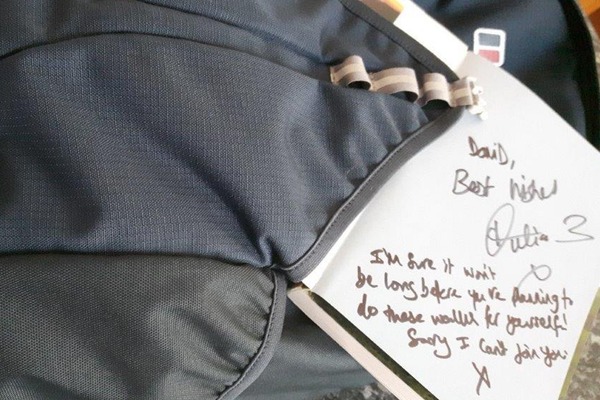 David,
Best Wishes
Julia B
I'm sure it won't
be long before you're planning to
do these walks for yourself!
Sorry I can't join you
X